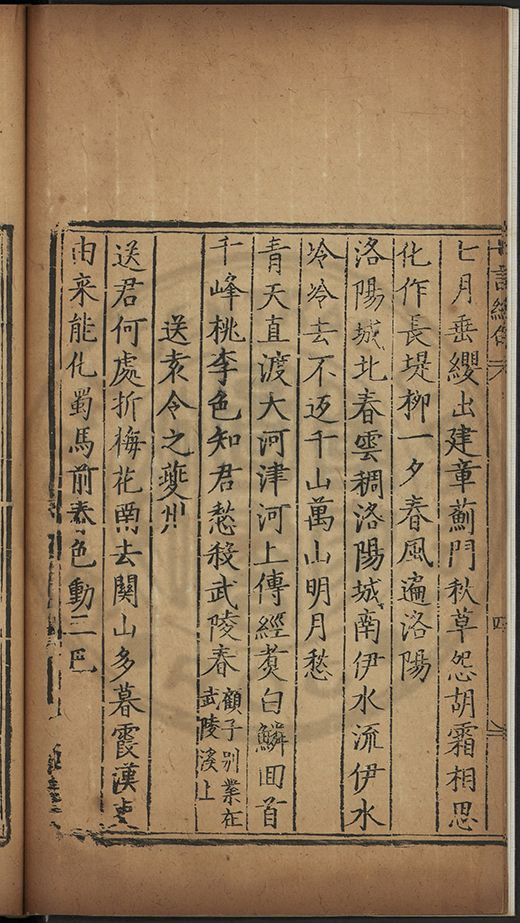 七月垂纓出建章薊門秋草怨胡霜相思
化作長堤柳一夕春風遍洛陽
洛陽城北春雲稠洛陽城南伊水流伊水
冷冷去不返千山萬山明月愁
青天直渡大河津河上傳經煑白鱗回首
千峰桃李色知君愁殺武陵春顧子别業在
武陵溪上
送袁令之夔州
送君何處折梅花南去關山多暮霞漢吏
由来能化蜀馬前春色動三巴